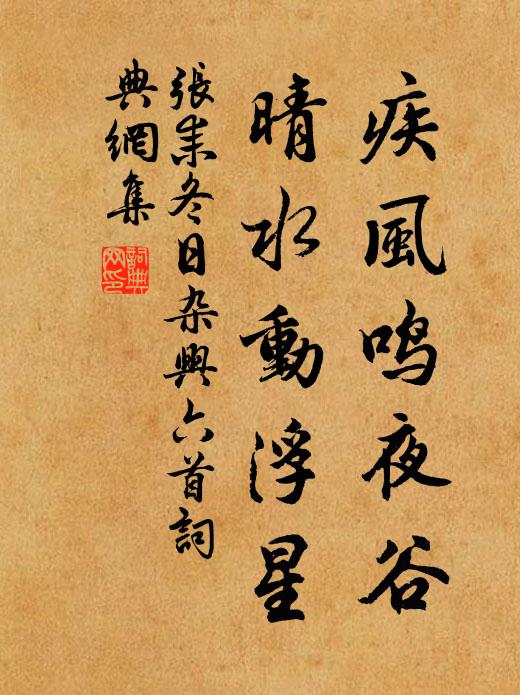 疾風鸣夜谷
晴水動浮星
張耒冬日杂興六首詞
典網集
詞典
网印